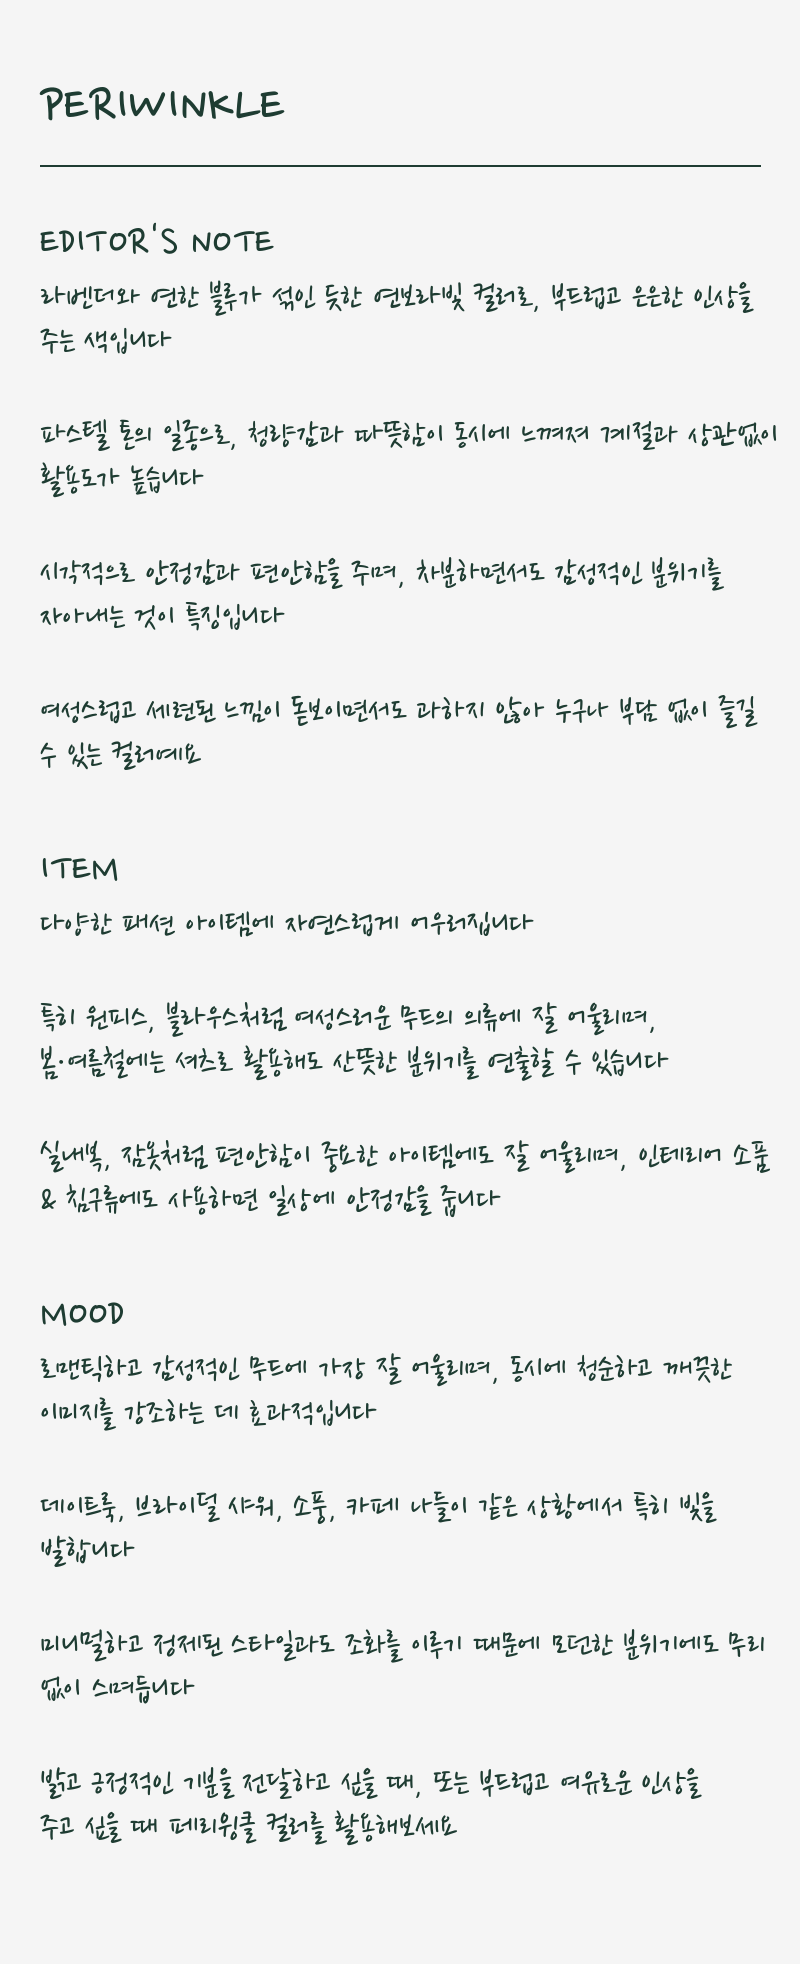 PERIWINKLE
EDITOR'S NOTE
라벤더와 연한 블루가 섞인 듯한 연보라빛 컬러로, 부드럽고 은은한 인상을
주는 색입니다
파스텔 톤의 일종으로, 청량감과 따뜻함이 동시에 느껴져 계절과 상관없이
활용도가 높습니다
시각적으로 안정감과 편안함을 주며, 차분하면서도 감성적인 분위기를
자아내는 것이 특징입니다
여성스럽고 세련된 느낌이 돋보이면서도 과하지 않아 누구나 부담 없이 즐길
수 있는 컬러예요
ITEM
다양한 패션 아이템에 자연스럽게 어우러집니다
특히 원피스, 블라우스처럼 여성스러운 무드의 의류에 잘 어울리며,
봄·여름철에는 셔츠로 활용해도 산뜻한 분위기를 연출할 수 있습니다
실내복, 잠옷처럼 편안함이 중요한 아이템에도 잘 어울리며, 인테리어 소품
& 침구류에도 사용하면 일상에 안정감을 줍니다
MOOD
로맨틱하고 감성적인 무드에 가장 잘 어울리며, 동시에 청순하고 깨끗한
이미지를 강조하는 데 효과적입니다
데이트룩, 브라이덜 샤워, 소풍, 카페 나들이 같은 상황에서 특히 빛을
발합니다
미니멀하고 정제된 스타일과도 조화를 이루기 때문에 모던한 분위기에도 무리
없이 스며듭니다
밝고 긍정적인 기분을 전달하고 싶을 때, 또는 부드럽고 여유로운 인상을
주고 싶을 때 페리윙클 컬러를 활용해보세요